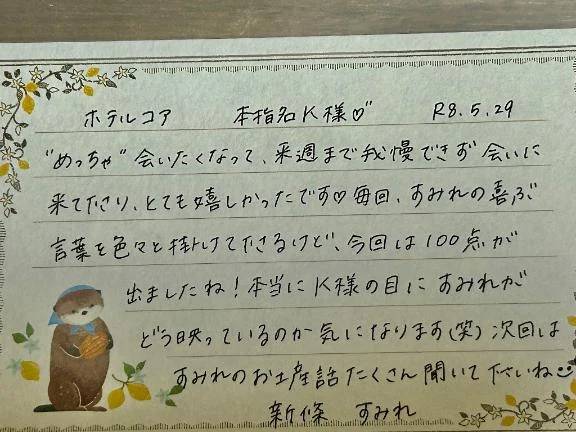 ホテルコア 本指名K様♡” R8.5.29
“めっちゃ”会いたくなって、来週まで我慢できず会いに
来て下さり、とても嬉しかったです♡毎回、すみれの喜ぶ
言葉を色々と掛けて下さるけど、今回は100点が
出ましたね！本当にK様の目にすみれが
どう映っているのか気になります(笑)次回は
すみれのお土産話たくさん聞いて下さいね
新條 すみれ